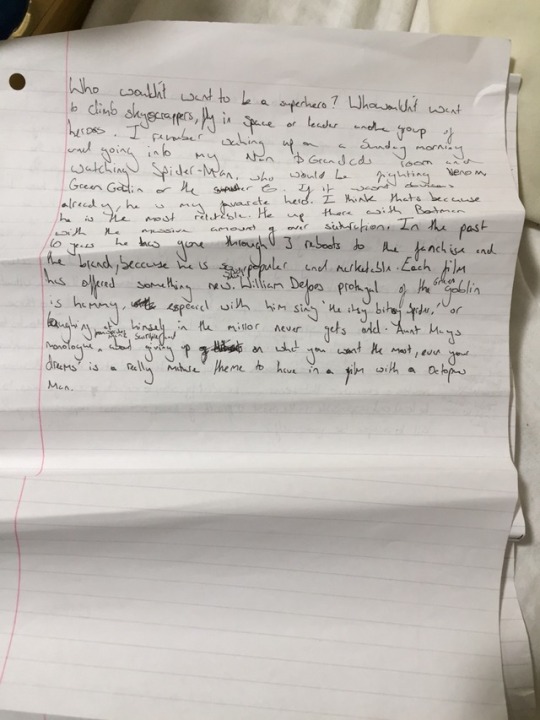 Who wouldn't want to be a superhero? Who wouldn't want
to climb skyscrappers, fly in space or leader group of
heroes. I remember waking up on a Sunday morning
and going into my Nan & Grandads room and
watching Spider-Man, who would be fighting Venom,
Green Goblin or the 6. If it wasnt obvious
already, he is my favourate hero. I think thats because
he is the most relatable. He up there with Batman
with the massive amount of over saturation. In the past
16 years he has gone through 3 reboots to the franchise and
the brand, because he is so popular and marketable. Each film
has offered something new. William Defoes protrayal of the Green Goblin
is hammy, especeal with him sing 'the itsy bitsy spider,' or
laughing at himself in the mirror never gets old. Aunt Mays
monologue, about giving up on what you want the most, even your
dreams is a really mature theme to have in a film with a Octopus
Man.